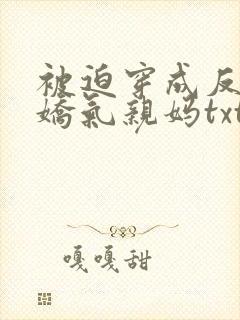 被迫穿成反
娇气亲妈txt
嘎嘎甜